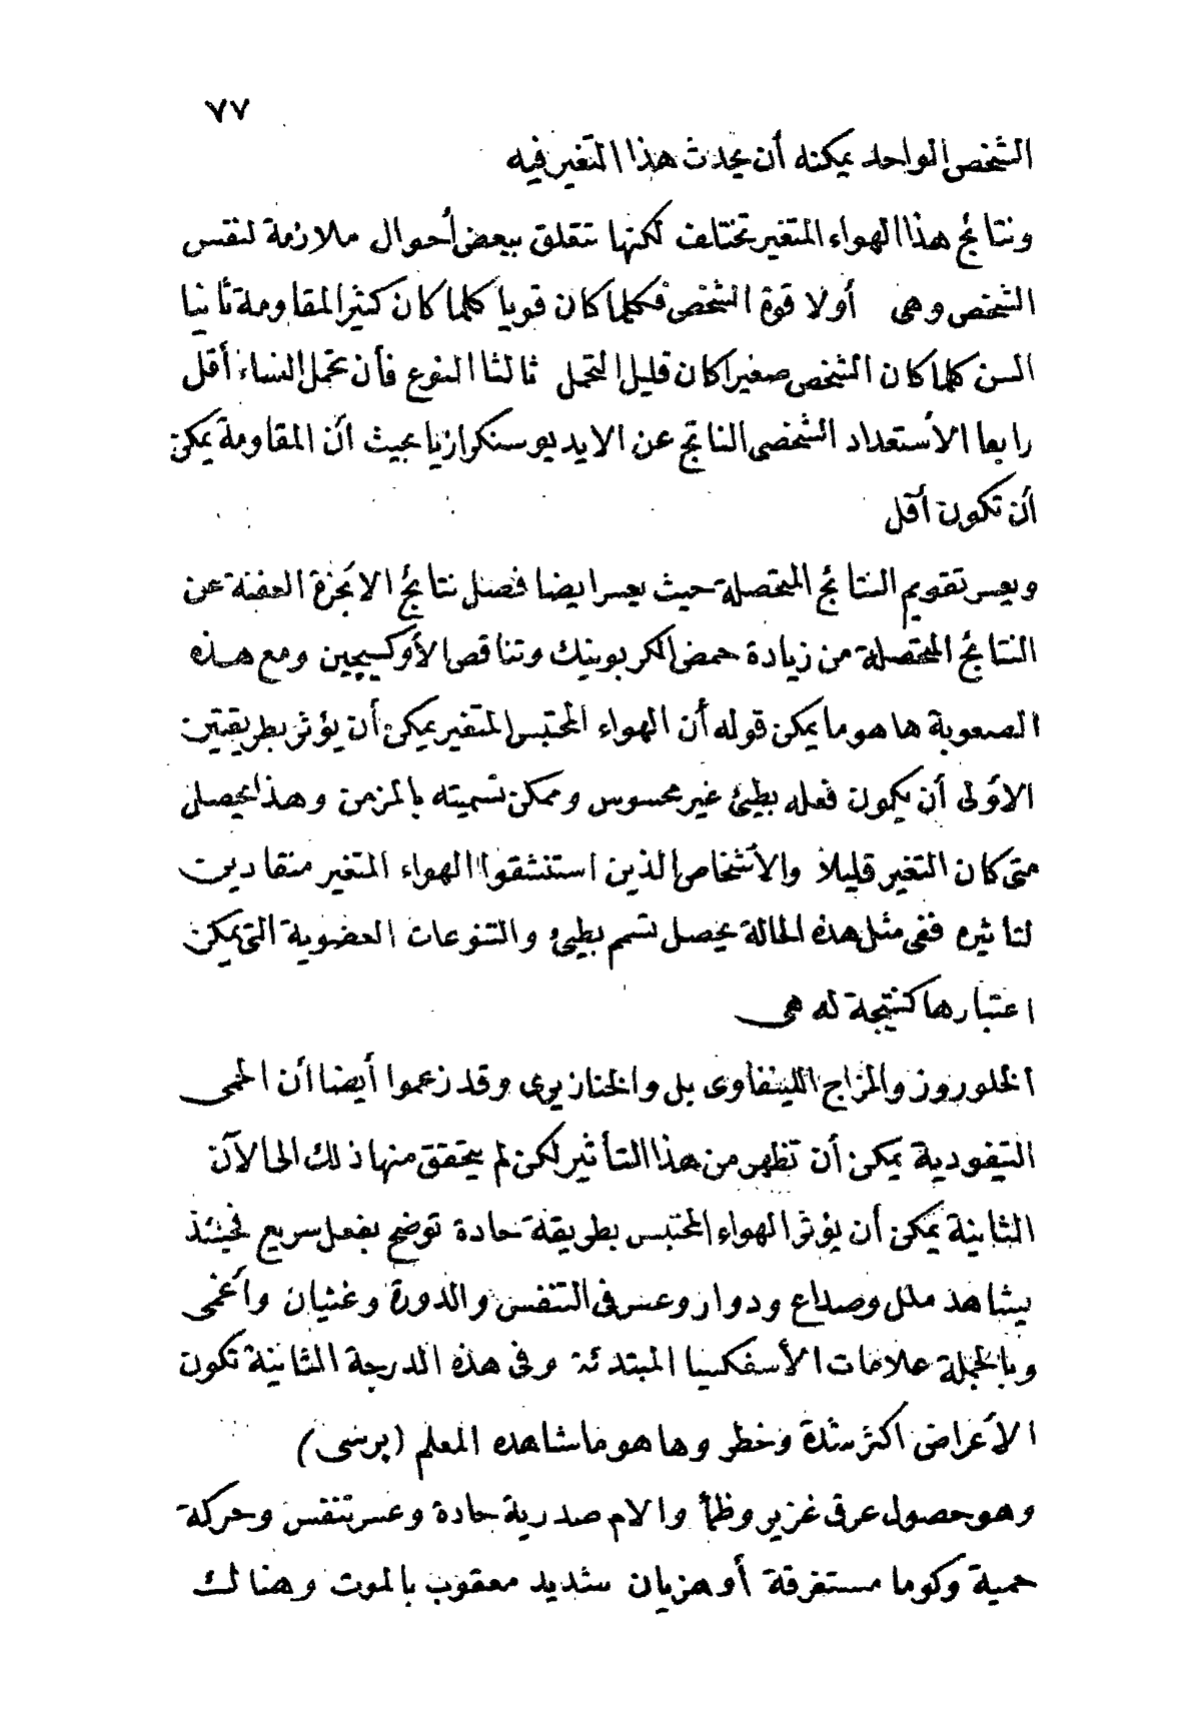 ٧٧
الشخص الواحد يمكنه أن يحدث هذا التغير فيه
ونتائج هذا الهواء المتغير تختلف لكنها تتعلق ببعض أحوال ملازمة لنفس
الشخص وهى أولا قوة الشخص فكلما كان قويا كلما كان كثير المقاومة ثانيا
السن كلما كان الشخص صغيرا كان قليل التحمل ثالثا النوع فأن تحمل النساء أقل
رابعا الأستعداد الشخصى الناتج عن الايديوسنكرازيا بحيث أن المقاومة يمكن
أن تكون أقل
ويعسر تقويم النتائج المتحصلة حيث يعسر ايضا فصل نتائج الابخرة العفنة عن
النتائج المتحصلة من زيادة حمض الكربونيك وتناقص الأوكسيجين ومع هذه
الصعوبة ها هو ما يمكن قوله أن الهواء المحتبس المتغير يمكن أن يؤثر بطريقتين
الأولى أن يكون فعله بطيئ غير محسوس وممكن تسميته بالمزمن وهذا يحصل
متى كان التغير قليلا والأشخاص الذين استنشقوا الهواء المتغير منقادين
لتأثيره ففى مثل هذه الحالة يحصل تسمم بطيئ والتنوعات العضوية التى يمكن
اعتبارها كنتيجة له هى
الخلوروز والمزاج اللينفاوى بل والخنازيرى وقد زعموا أيضا أن الحمى
التيفودية يمكن أن تظهر من هذا التأثير لكن لم يتحقق منها ذلك الى الآن
الثانية يمكن أن يؤثر الهواء المحتبس بطريقة حادة توضح بفعل سريع فحينئذ
يشاهد ملل وصداع ودوار وعسر فى التنفس والدورة وغثيان وأغمى
وبالجملة علامات الأسفكسيا المبتدئة وفى هذه الدرجة الثانية تكون
الأعراض اكثر شدة وخطر وها هو ما شاهده المعلم (برسى)
وهو حصول عرق غزير وظمأ والام صدرية حادة وعسر تنفس وحركة
حمية وكوما مستغرقة أو هزيان شديد معقوب بالموت وهنالك